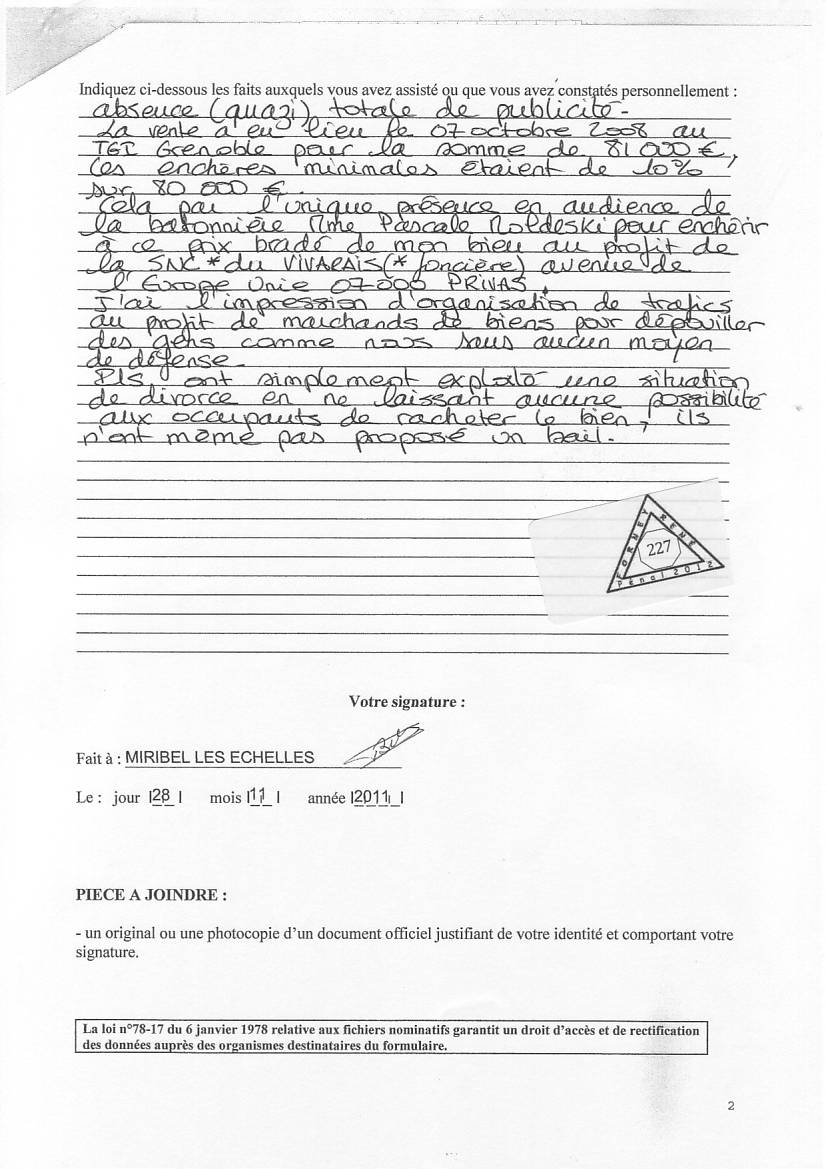 Indiquez ci-dessous les faits auxquels vous avez assisté ou que vous avez constatés personnellement :
absence (quazi) totale de publicité -
La vente a eu lieu le 07 octobre 2008 au
TGI Grenoble pour la somme de 81 000 €,
les enchères minimales étaient de 10%
sur 80 000 €.
Cela par l'unique présence en audience de
la batonnière Mme Pascale Moldeski pour enchérir
à ce prix bradé de mon bien au profit de
la SNC * du VIVARAIS (* foncière) avenue de
l'Europe Unie 07000 PRIVAS.
J'ai l'impression d'organisation de trafics
au profit de marchands de biens pour dépouiller
des gens comme nous sans aucun moyen
de défense
Ils ont simplement exploité une situation
de divorce en ne laissant aucune possibilité
aux occupants de racheter le bien, ils
n'ont même pas proposé un bail.
FORNEY RENÉ
227
Pénal 2012
Votre signature :
Fait à : MIRIBEL LES ECHELLES
Le : jour |28 | mois |11 | année |2011 |
PIECE A JOINDRE :
- un original ou une photocopie d'un document officiel justifiant de votre identité et comportant votre
signature.
La loi n°78-17 du 6 janvier 1978 relative aux fichiers nominatifs garantit un droit d'accès et de rectification
des données auprès des organismes destinataires du formulaire.
2